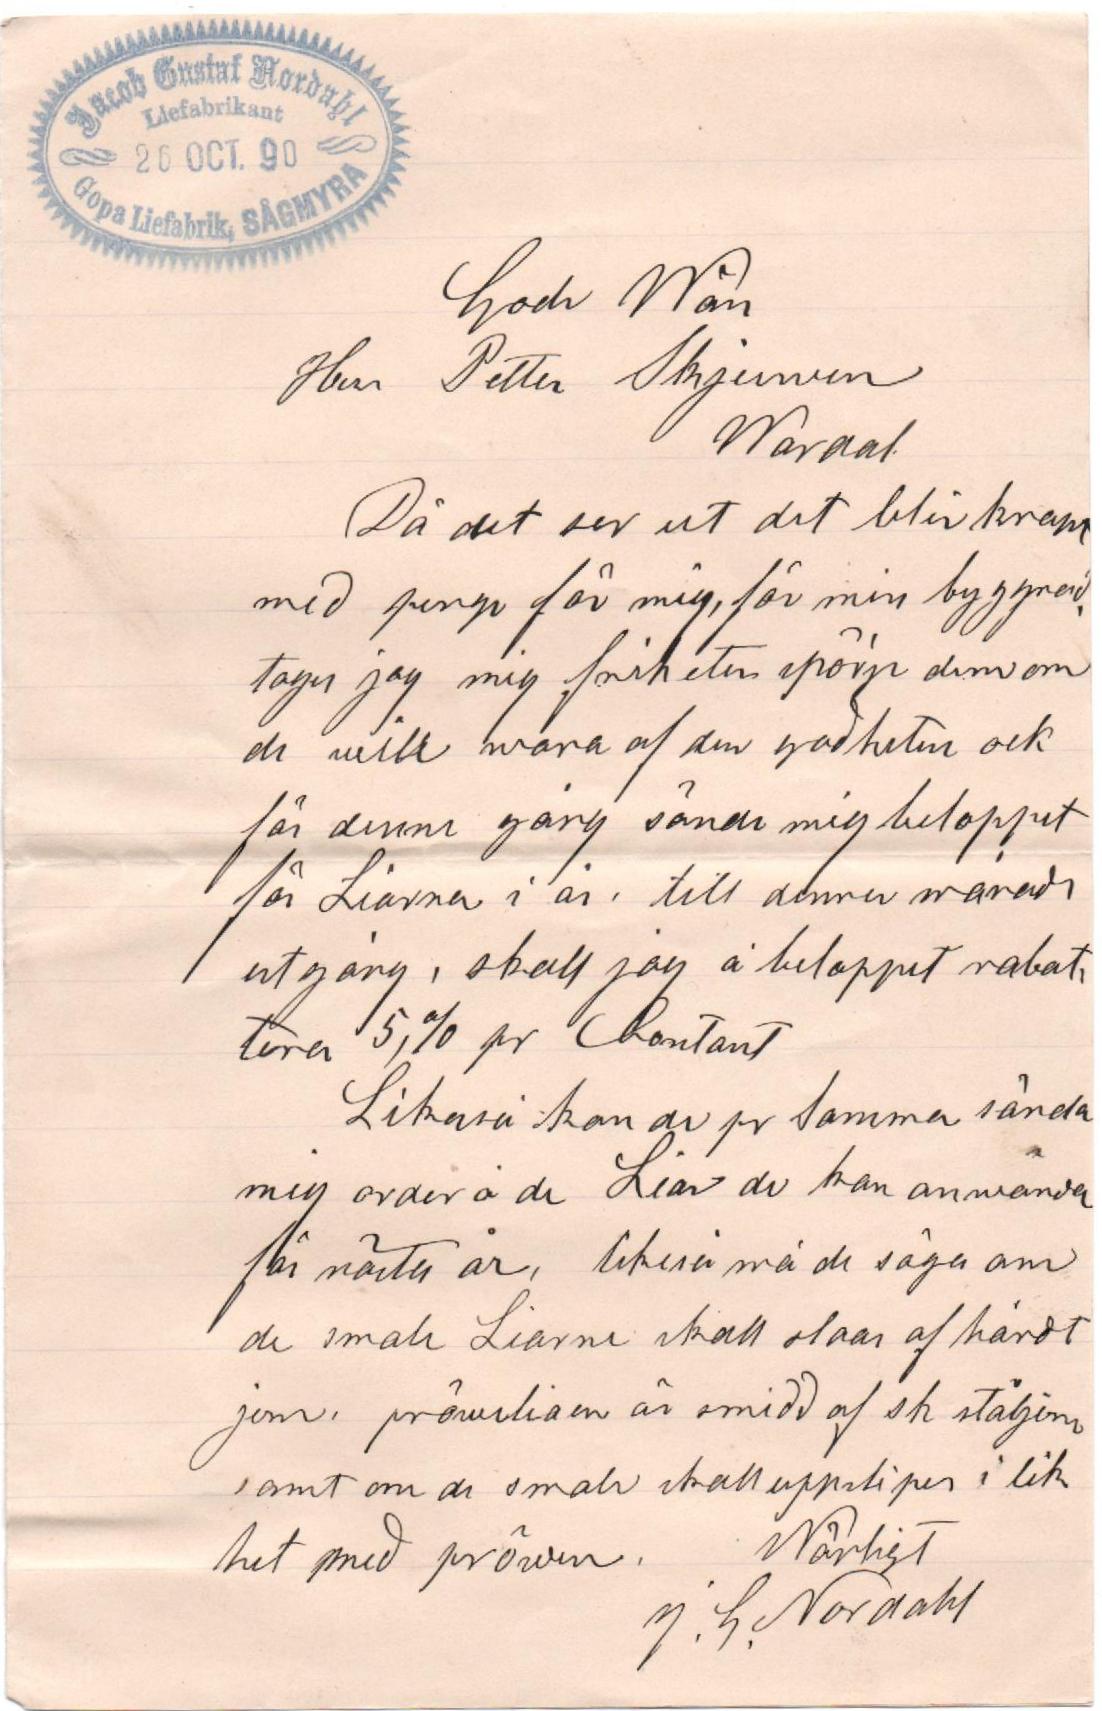 Jacob Gustaf Nordahl
Liefabrikant
26 OCT. 90
Gopa Liefabrik, SÅGMYRA
Gode Wän
Herr Petter Skjerwen
Wardal
Då det ser ut det blir knapt
med penge för mig, för min byggnad,
tager jag mig friheten spörje dem om
de wille wara af den godheten ock
för denne gång sände mig beloppet
för Liarna i år, till denna månads
utgång, skall jag å beloppet rabat-
tera 5,% pr Contant
Likaså kan de pr Samma sända
mig order å de Liar de kan anwända
för nästa år, likeså må de säga om
de smale Liarne skall slaas af hårdt
jern. pröwelien är smidd af sk ståljern
samt om de smale skall uppslipes i lik
het med pröwen. Wänligt
J. G. Nordahl